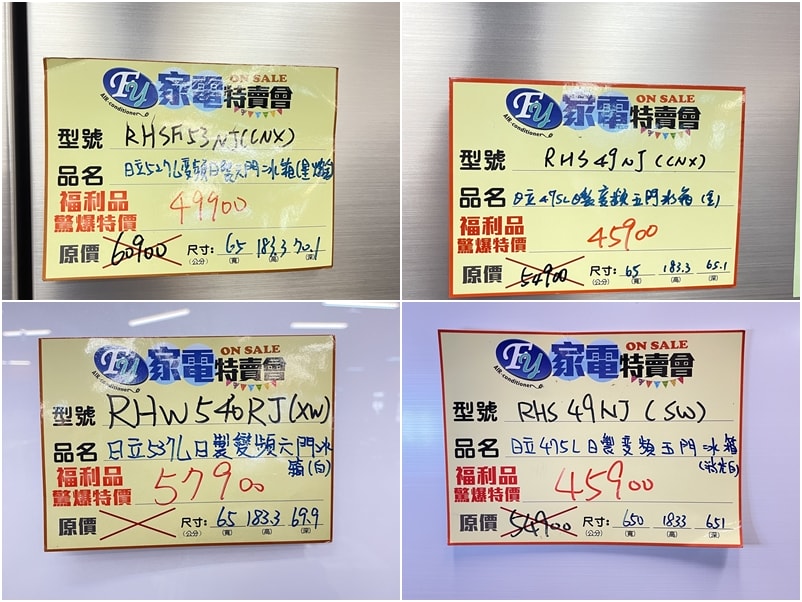 FU 家電 ON SALE 特賣會
AIR conditioner
型號 RHSF53NJ(CNX)
品名 日立527L變頻日製六門冰箱(星燦金)
福利品
驚爆特價 49900
原價 60900 尺寸: 65 183.3 70.1
(公分) (寬) (高) (深)
FU 家電 ON SALE 特賣會
AIR conditioner
型號 RHS49NJ(CNX)
品名 日立475L日製變頻五門冰箱(金)
福利品
驚爆特價 45900
原價 54900 尺寸: 65 183.3 65.1
(公分) (寬) (高) (深)
FU 家電 ON SALE 特賣會
AIR conditioner
型號 RHW540RJ(XW)
品名 日立537L日製變頻六門冰
箱(白)
福利品
驚爆特價 57900
原價 尺寸: 65 183.3 69.9
(公分) (寬) (高) (深)
FU 家電 ON SALE 特賣會
AIR conditioner
型號 RHS49NJ(SW)
品名 日立475L日製變頻五門冰箱
福利品
驚爆特價 45900
原價 54900 尺寸: 650 1833 651
(公分) (寬) (高) (深)